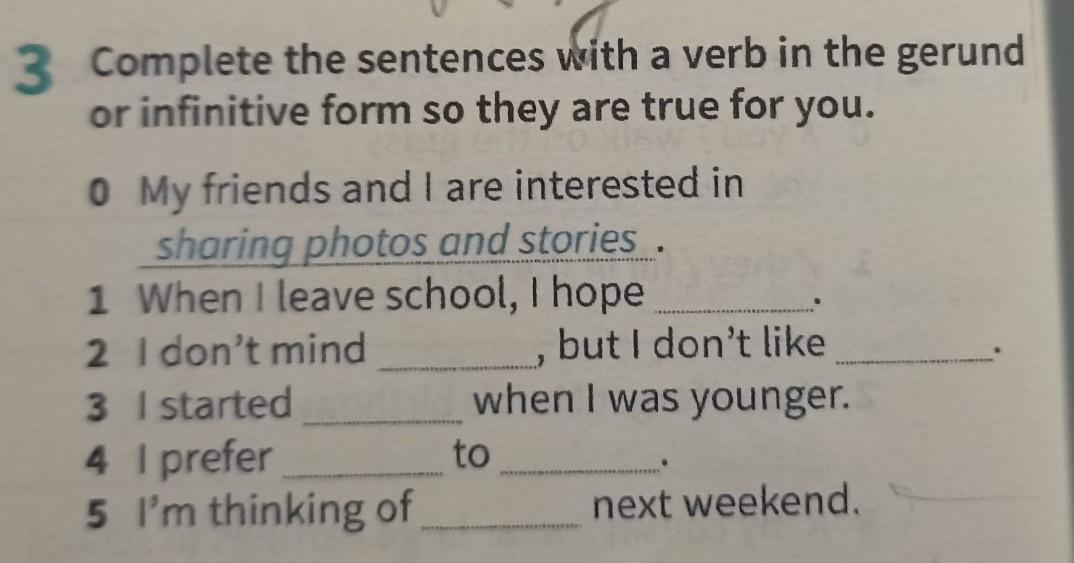 3 Complete the sentences with a verb in the gerund
or infinitive form so they are true for you.
0 My friends and I are interested in
sharing photos and stories .
1 When I leave school, I hope ______.
2 I don't mind ______, but I don't like ______.
3 I started ______ when I was younger.
4 I prefer ______ to ______.
5 I'm thinking of ______ next weekend.